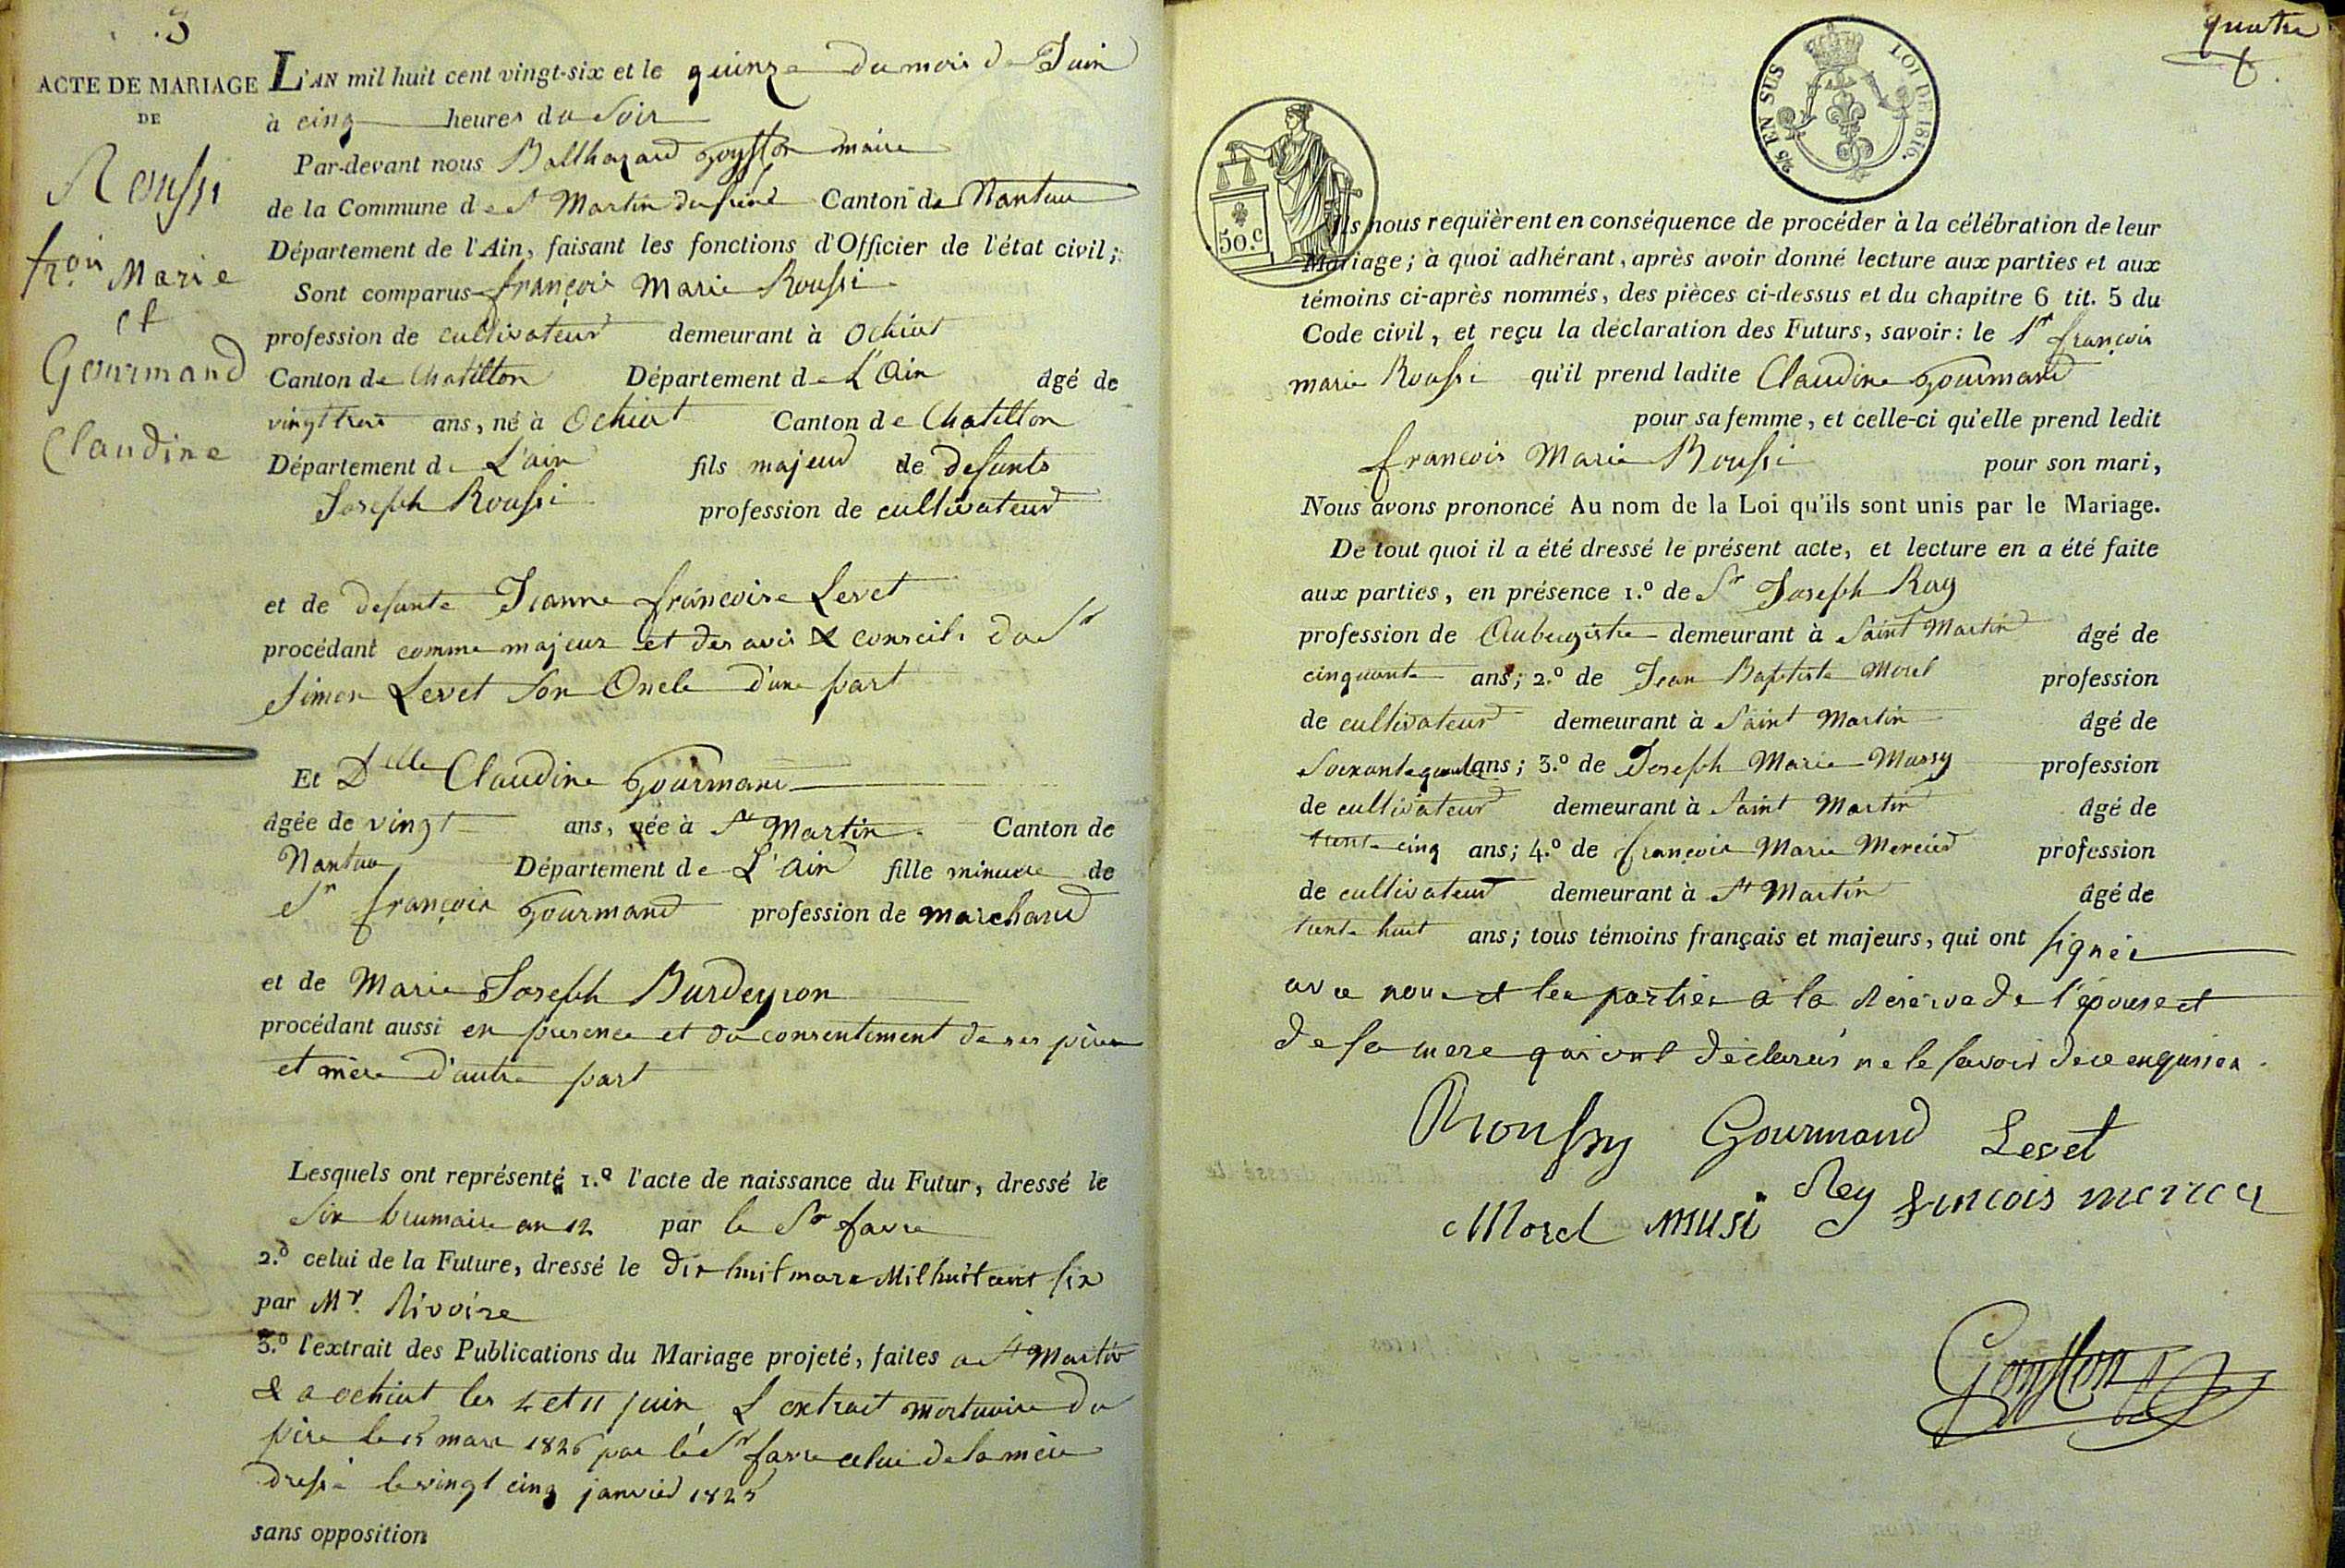 3
ACTE DE MARIAGE
DE
Roussi
fr.ois Marie
et
Gourmand
Claudine
L'AN mil huit cent vingt-six et le quinze du mois de Juin
à cinq heures du soir
Par-devant nous Balthazard Goyffon maire
de la Commune de St Martin du frêne Canton de Nantua
Département de l'Ain, faisant les fonctions d'Officier de l'état civil;
Sont comparus françois Marie Roussi
profession de cultivateur demeurant à Ochiat
Canton de Chatillon Département de L'Ain âgé de
vingt trois ans, né à Ochiat Canton de Chatillon
Département de L'ain fils majeur de defunts
Joseph Roussi profession de cultivateur
et de defunte Jeanne françoise Levet
procédant comme majeur et des avis & conseils du Sr
Simon Levet son Oncle d'une part
Et Delle Claudine Gourmand
âgée de vingt ans, née à St Martin Canton de
Nantua Département de L'Ain fille mineure de
Sr françois Gourmand profession de marchand
et de Marie Joseph Burdeyron
procédant aussi en presence et du consentement de ses père
et mère d'autre part
Lesquels ont représenté 1.º l'acte de naissance du Futur, dressé le
Six brumaire an 12 par le Sr favre
2.º celui de la Future, dressé le dix huit mars Mil huit cent six
par Mr. Rivoire
3.º l'extrait des Publications du Mariage projeté, faites a St Martin
& a ochiat les 4 et 11 juin, L'extrait mortuaire du
père le 15 mars 1826 par le Sr favre celui de la mère
dressé le vingt cinq janvier 1825
sans opposition
quatre
50.C
2/5 EN SUS
LOI DE 1816.
Ils nous requièrent en conséquence de procéder à la célébration de leur
Mariage; à quoi adhérant, après avoir donné lecture aux parties et aux
témoins ci-après nommés, des pièces ci-dessus et du chapitre 6 tit. 5 du
Code civil, et reçu la déclaration des Futurs, savoir: le Sr françois
marie Roussi qu'il prend ladite Claudine Gourmand
pour sa femme, et celle-ci qu'elle prend ledit
francois Marie Roussi pour son mari,
Nous avons prononcé Au nom de la Loi qu'ils sont unis par le Mariage.
De tout quoi il a été dressé le présent acte, et lecture en a été faite
aux parties, en présence 1.º de Sr Joseph Ray
profession de Aubergiste demeurant à Saint Martin âgé de
cinquante ans; 2.º de Jean Baptiste Morel profession
de cultivateur demeurant à Saint Martin âgé de
Soixante ans; 3.º de Joseph Marie Mussy profession
de cultivateur demeurant à Saint Martin âgé de
trente cinq ans; 4.º de françois Marie Mercier profession
de cultivateur demeurant à St Martin âgé de
trente huit ans; tous témoins français et majeurs, qui ont signés
avec nous et les parties a la réserve de l'épouse et
de sa mere qui ont déclarés ne le savoir de ce enquises.
Roussy Gourmand Levet
Morel MUSi Rey francois mercier
Goyffon